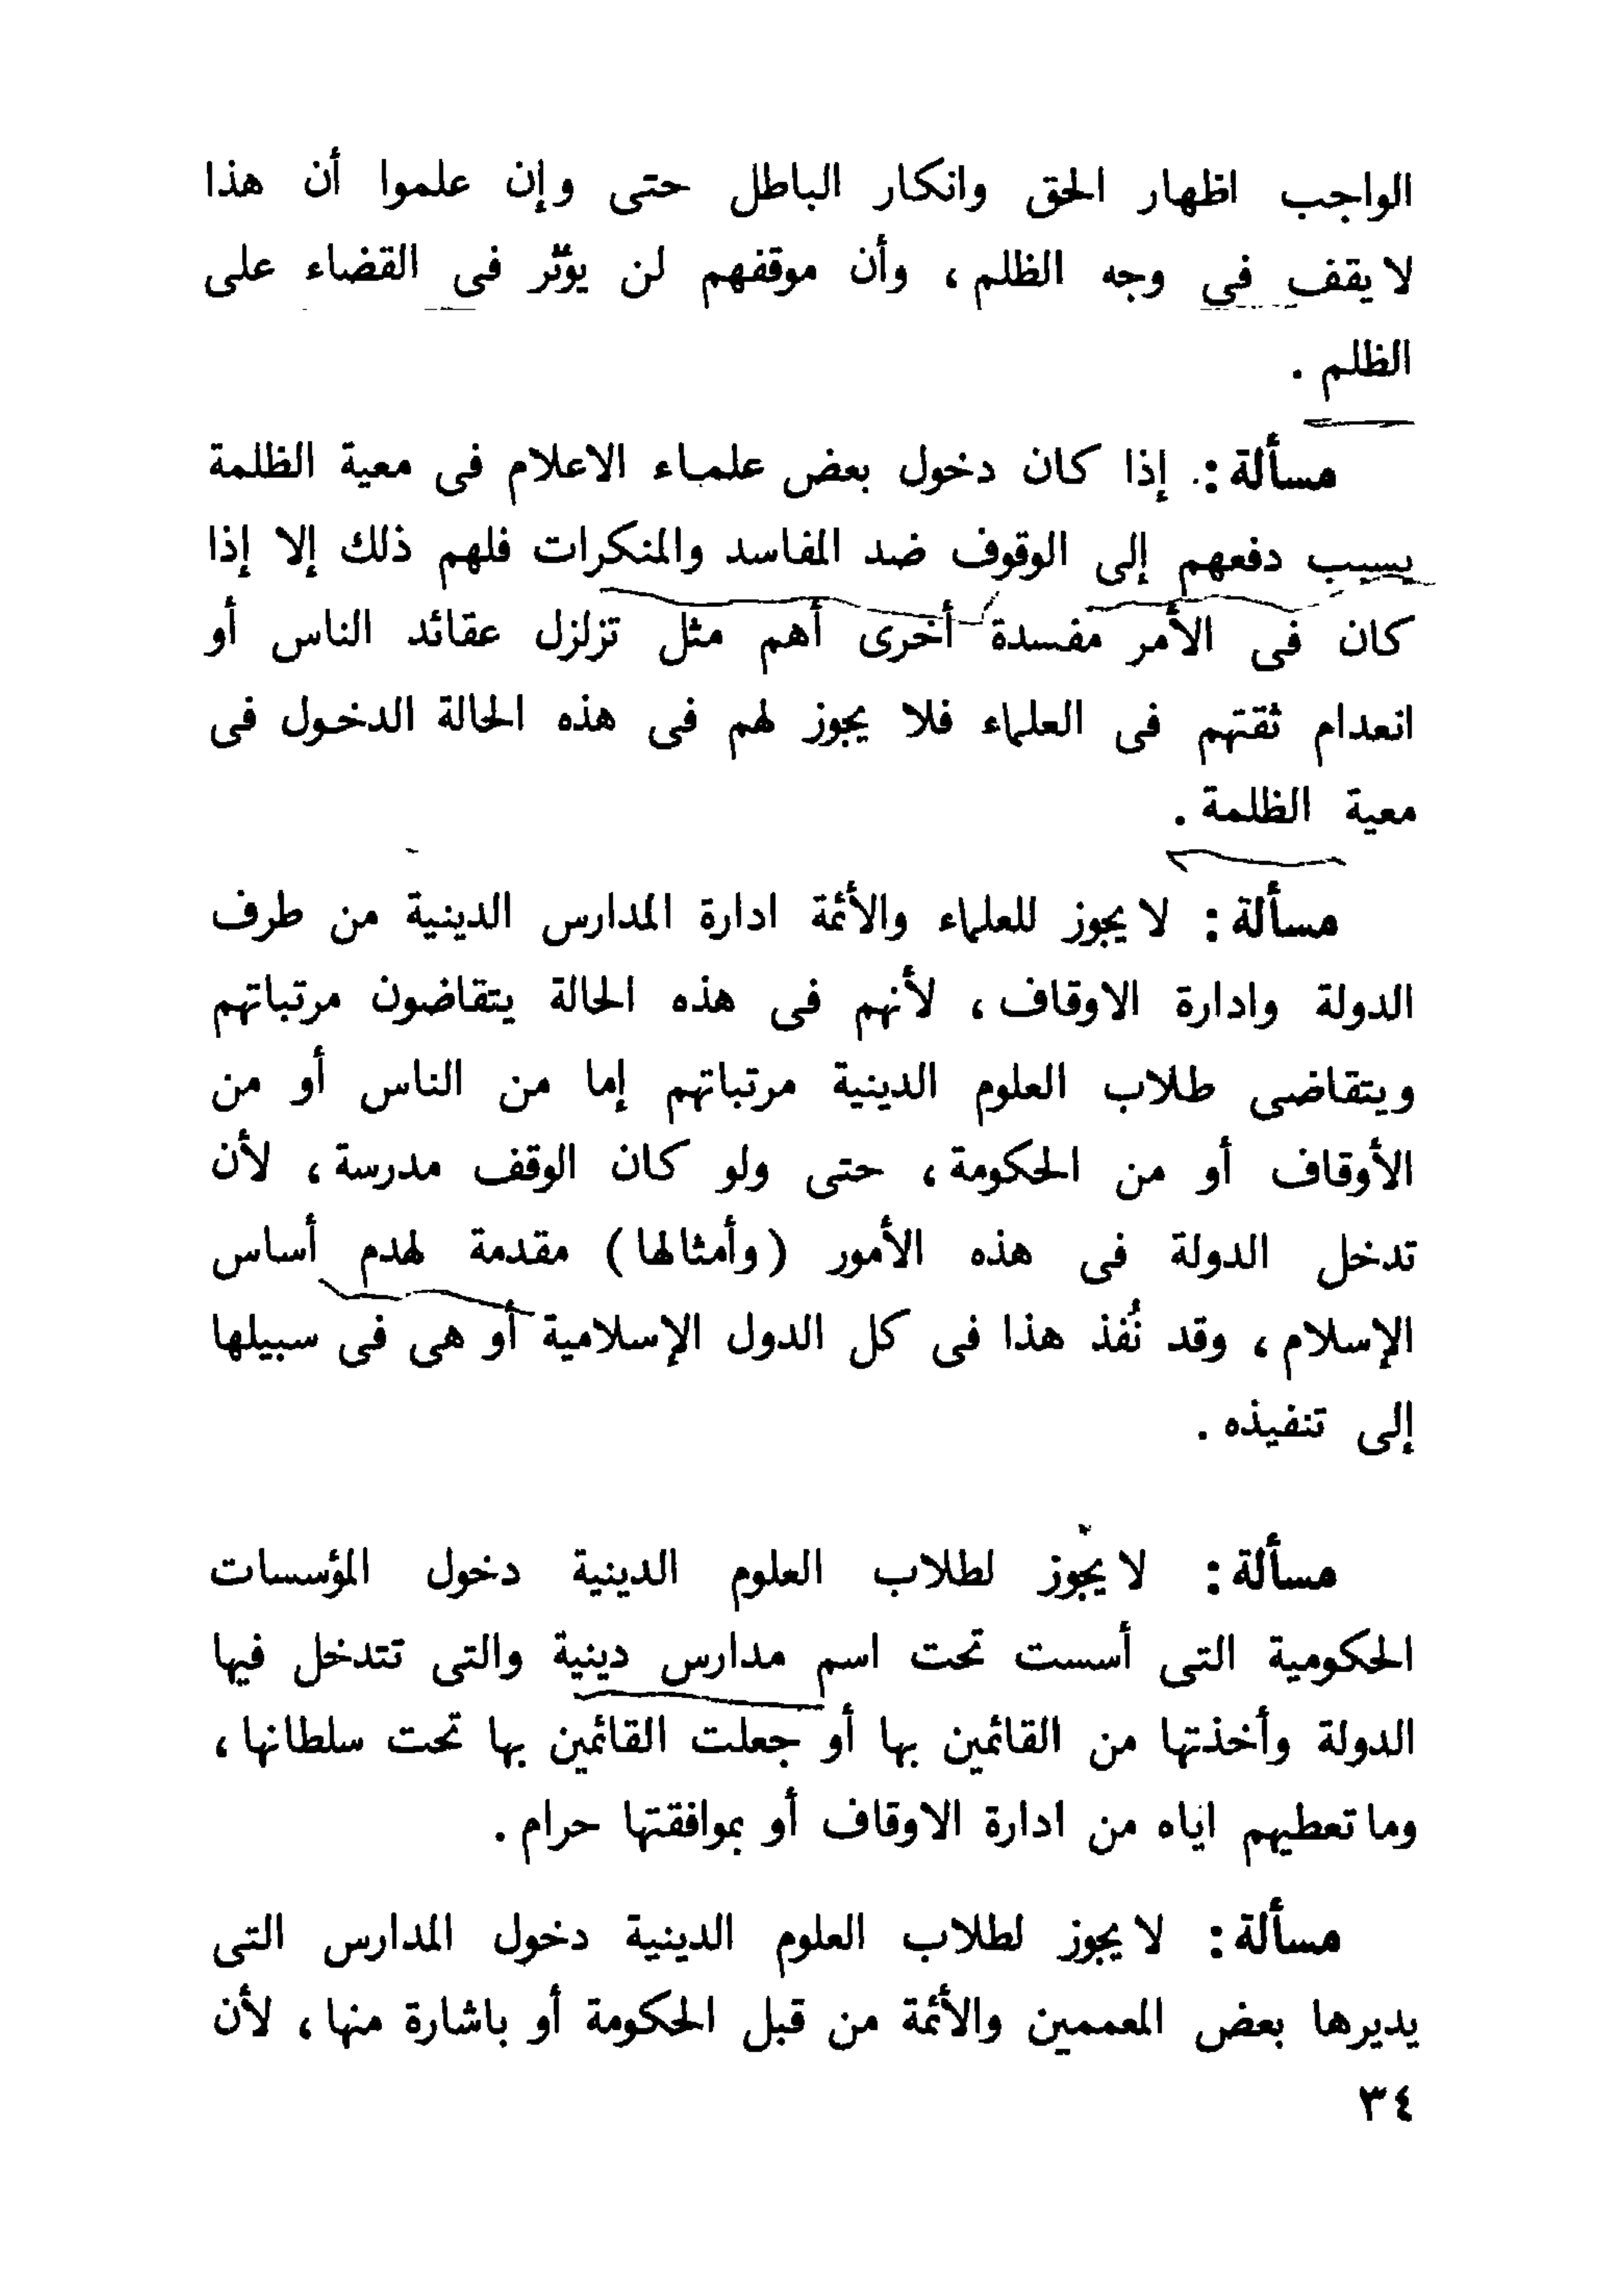 الواجب اظهار الحق وانكار الباطل حتى وإن علموا أن هذا
لا يقف في وجه الظلم ، وأن موقفهم لن يؤثر في القضاء على
الظلم .
مسألة : إذا كان دخول بعض علماء الاعلام فى معية الظلمة
بسبب دفعهم إلى الوقوف ضد المفاسد والمنكرات فلهم ذلك إلا إذا
كان فى الأمر مفسدة أخرى أهم مثل تزلزل عقائد الناس أو
انعدام ثقتهم فى العلماء فلا يجوز لهم فى هذه الحالة الدخول فى
معية الظلمة .
مسألة : لا يجوز للعلماء والأئمة ادارة المدارس الدينية من طرف
الدولة وادارة الاوقاف ، لأنهم فى هذه الحالة يتقاضون مرتباتهم
ويتقاضى طلاب العلوم الدينية مرتباتهم إما من الناس أو من
الأوقاف أو من الحكومة ، حتى ولو كان الوقف مدرسة ، لأن
تدخل الدولة فى هذه الأمور ( وأمثالها ) مقدمة لهدم أساس
الإسلام ، وقد نُفذ هذا فى كل الدول الإسلامية أو هى فى سبيلها
إلى تنفيذه .
مسألة : لا يجوز لطلاب العلوم الدينية دخول المؤسسات
الحكومية التى أسست تحت اسم مدارس دينية والتى تتدخل فيها
الدولة وأخذتها من القائمين بها أو جعلت القائمين بها تحت سلطانها ،
وما تعطيهم اياه من ادارة الاوقاف أو بموافقتها حرام .
مسألة : لا يجوز لطلاب العلوم الدينية دخول المدارس التى
يديرها بعض المعممين والأئمة من قبل الحكومة أو باشارة منها ، لأن
٣٤